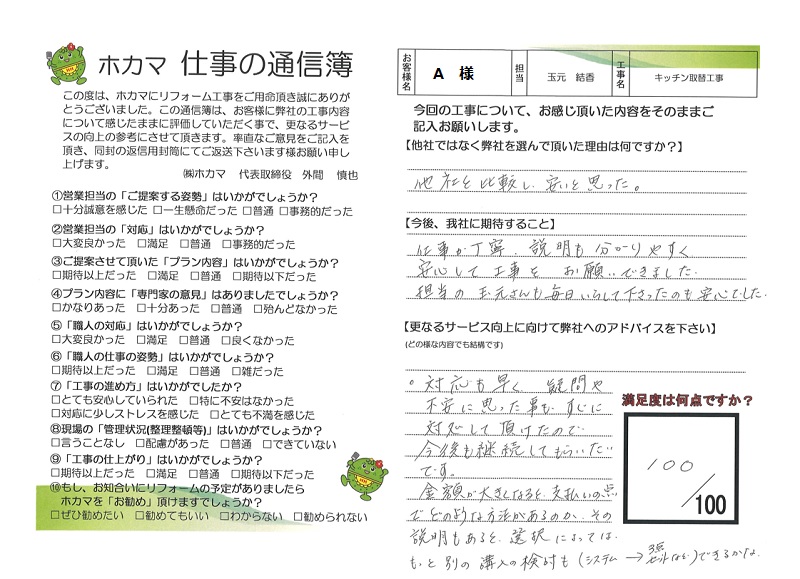 ホカマ 仕事の通信簿
この度は、ホカマにリフォーム工事をご用命頂き誠にありが
とうございました。この通信簿は、お客様に弊社の工事内容
について感じたままに評価していただく事で、更なるサービ
スの向上の参考にさせて頂きます。率直なご意見をご記入を
頂き、同封の返信用封筒にてご返送下さいます様お願い申し
上げます。
㈱ホカマ 代表取締役 外間 慎也
①営業担当の「ご提案する姿勢」はいかがでしょうか？
□十分誠意を感じた □一生懸命だった □普通 □事務的だった
②営業担当の「対応」はいかがでしょうか？
□大変良かった □満足 □普通 □事務的だった
③ご提案させて頂いた「プラン内容」はいかがでしょうか？
□期待以上だった □満足 □普通 □期待以下だった
④プラン内容に「専門家の意見」はありましたでしょうか？
□かなりあった □十分あった □普通 □殆んどなかった
⑤「職人の対応」はいかがでしょうか？
□大変良かった □満足 □普通 □良くなかった
⑥「職人の仕事の姿勢」はいかがでしょうか？
□期待以上だった □満足 □普通 □雑だった
⑦「工事の進め方」はいかがでしたか？
□とても安心していられた □特に不安はなかった
□対応に少しストレスを感じた □とても不満を感じた
⑧現場の「管理状況(整理整頓等)」はいかがでしょうか？
□言うことなし □配慮があった □普通 □できていない
⑨「工事の仕上がり」はいかがでしょうか？
□期待以上だった □満足 □普通 □期待以下だった
⑩もし、お知合いにリフォームの予定がありましたら
ホカマを「お勧め」頂けますでしょうか？
□ぜひ勧めたい □勧めてもいい □わからない □勧められない
お客様名 A 様 担当 玉元 結香 工事名 キッチン取替工事
今回の工事について、お感じ頂いた内容をそのままご
記入お願いします。
【他社ではなく弊社を選んで頂いた理由は何ですか？】
他社を比較し、安いと思った。
【今後、我社に期待すること】
仕事が丁寧、説明も分かりやすく
安心して工事をお願いできました。
担当の玉元さんも毎日いらして下さったのも安心でした。
【更なるサービス向上に向けて弊社へのアドバイスを下さい】
(どの様な内容でも結構です)
。対応も早く、疑問や
不安に思った事も、すぐに
対応して頂けたので
今後も継続してもらいたい
です。
金額が大きくなると、支払いの点
でどのような方法があるのか、その
説明もあると、選択によっては、
もっと別の購入の検討も(システム→3点セットなど)できるかな。
満足度は何点ですか？
100/100